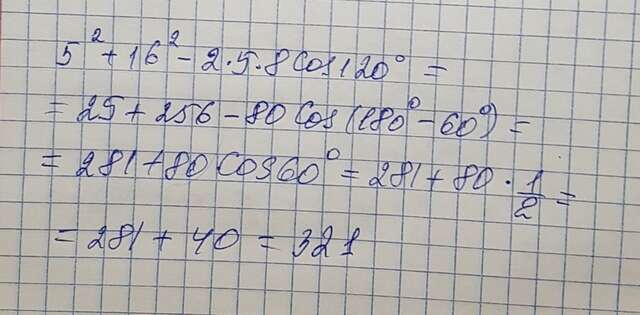 5² + 16² - 2·5·8 cos 120° =
= 25 + 256 - 80 cos (180° - 60°) =
= 281 + 80 cos 60° = 281 + 80 · 1/2 =
= 281 + 40 = 321